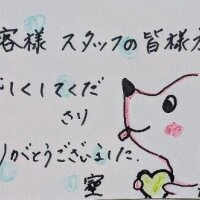 客様 スタッフの皆様方
しくしてくだ
さり
りがとうございました.